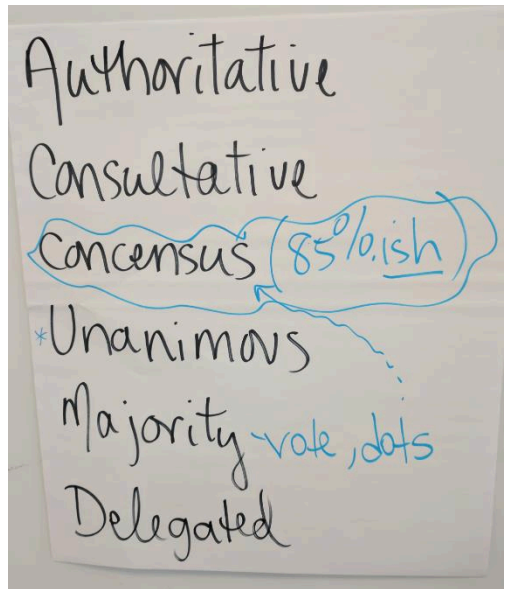 Authoritative
Consultative
Concensus (85%.ish)
*Unanimous
Majority -vote, dots
Delegated